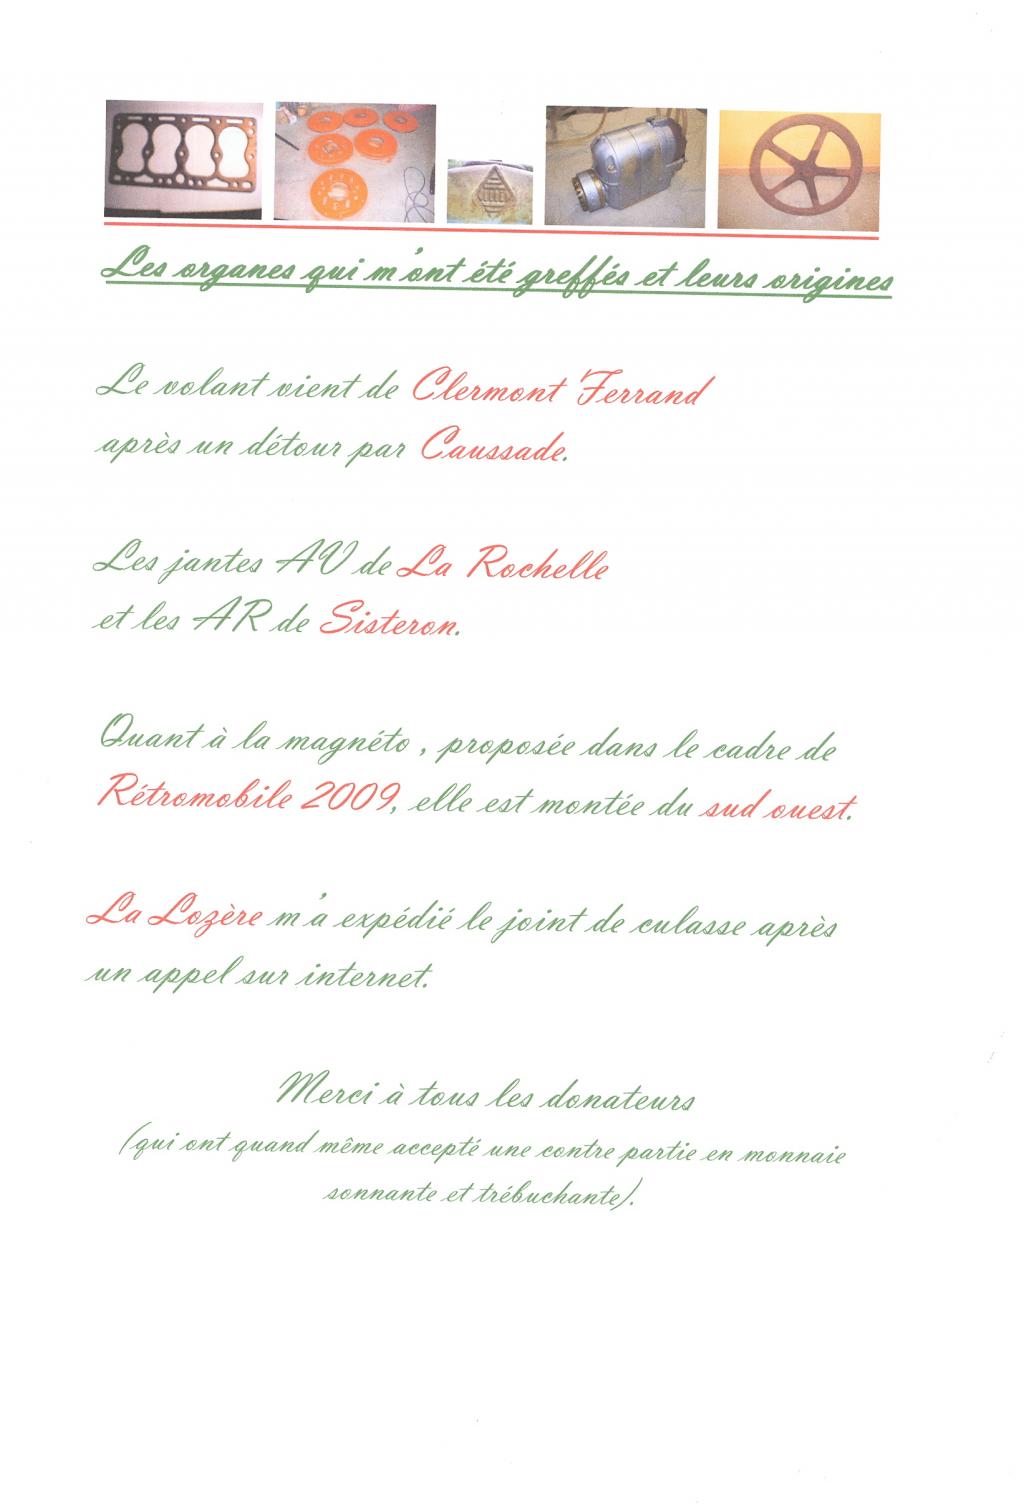 Les organes qui m'ont été greffés et leurs origines
Le volant vient de Clermont Ferrand
après un détour par Caussade.
Les jantes AV de La Rochelle
et les AR de Sisteron.
Quant à la magnéto , proposée dans le cadre de
Rétromobile 2009, elle est montée du sud ouest.
La Lozère m'a expédié le joint de culasse après
un appel sur internet.
Merci à tous les donateurs
(qui ont quand même accepté une contre partie en monnaie
sonnante et trébuchante).